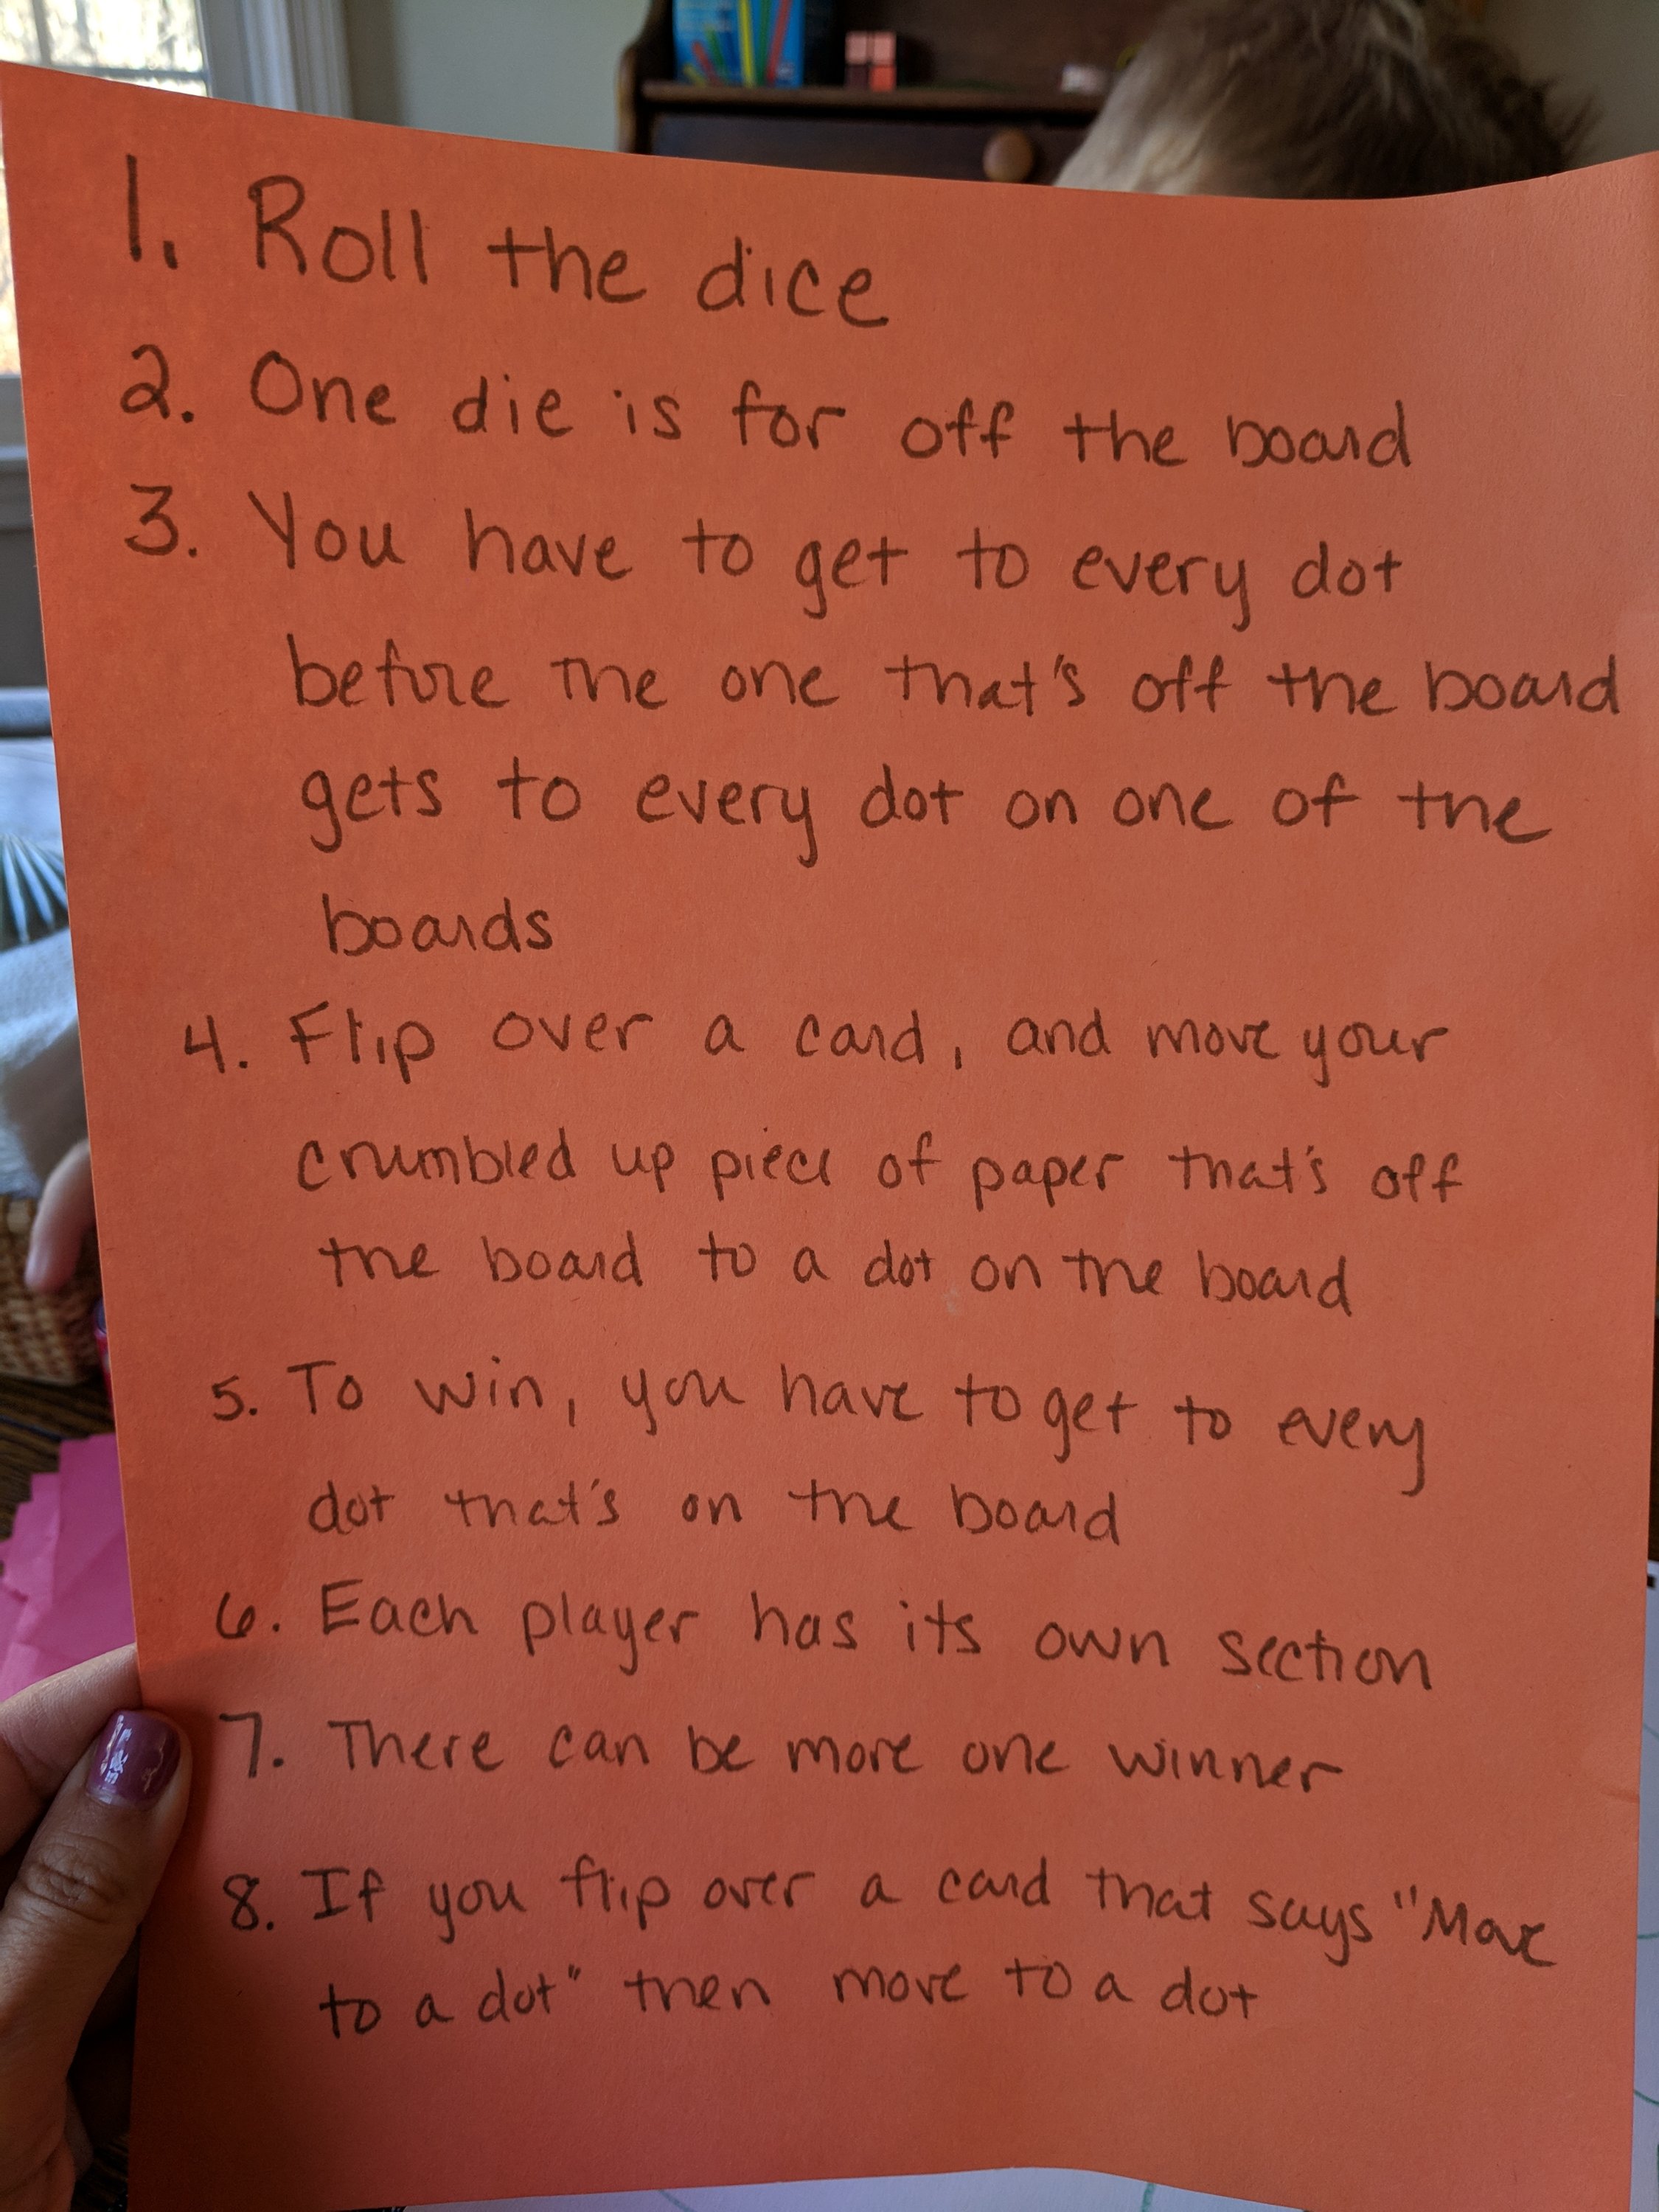 1. Roll the dice
2. One die is for off the board
3. You have to get to every dot
before the one that's off the board
gets to every dot on one of the
boards
4. Flip over a card, and move your
crumbled up piece of paper that's off
the board to a dot on the board
5. To win, you have to get to every
dot that's on the board
6. Each player has its own section
7. There can be more one winner
8. If you flip over a card that says "Move
to a dot" then move to a dot